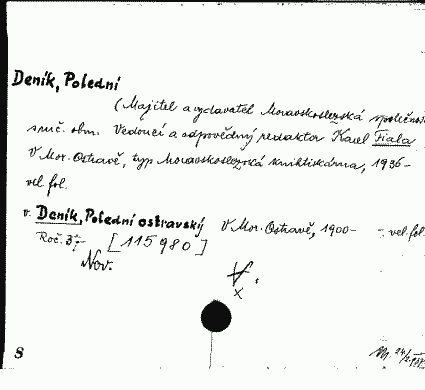 Deník, Polední
(Majitel a vydavatel Moravskoslezská společnost
s ruč. obm. Vedoucí a odpovědný redaktor Karel Fiala
V Mor. Ostravě, typ. Moravskoslezská knihtiskárna, 1936–
vel. fol.
v. Deník, Polední ostravský V Mor. Ostravě, 1900– –, vel. fol.
Roč. 37– [115980]
Nov.
x
8 24/2.